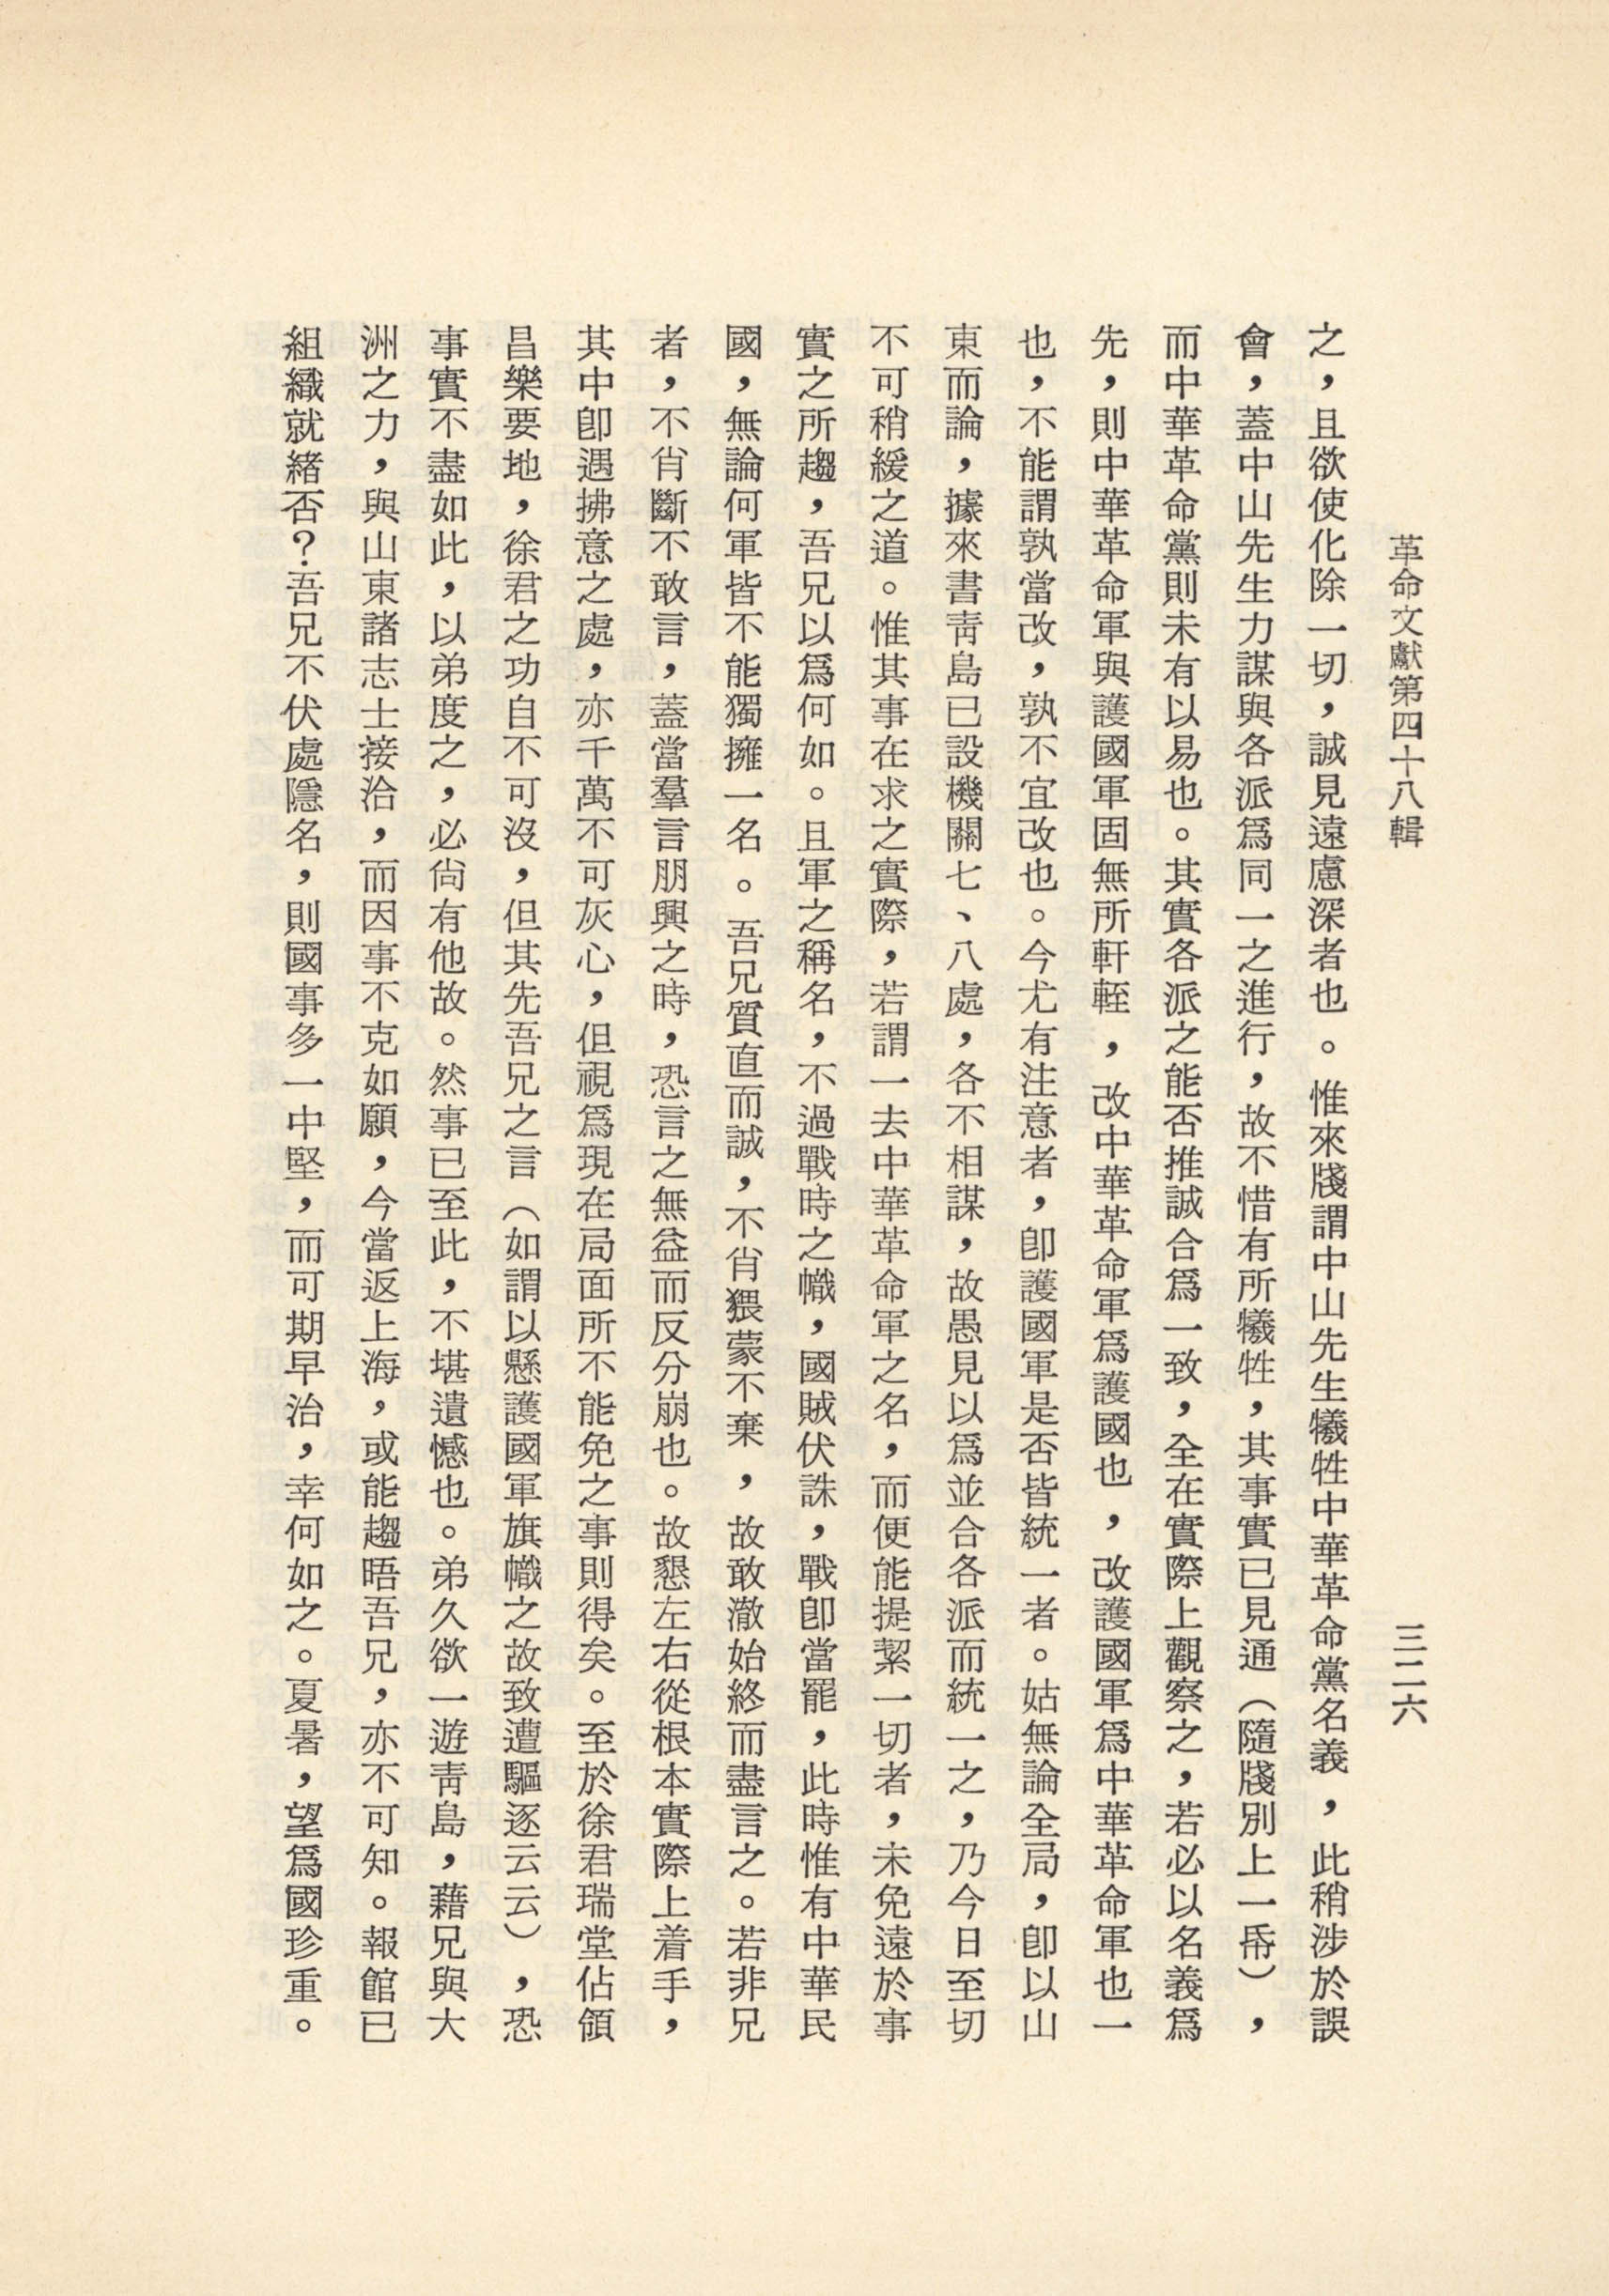 革命文獻第四十八輯
三二六
之，且欲使化除一切，誠見遠慮深者也。惟來牋謂中山先生犧牲中華革命黨名義，此稍涉於誤
會，蓋中山先生力謀與各派爲同一之進行，故不惜有所犧牲，其事實已見通（隨牋別上一帋），
而中華革命黨則未有以易也。其實各派之能否推誠合爲一致，全在實際上觀察之，若必以名義爲
先，則中華革命軍與護國軍固無所軒輊，改中華革命軍爲護國也，改護國軍爲中華革命軍也一
也，不能謂孰當改，孰不宜改也。今尤有注意者，卽護國軍是否皆統一者。姑無論全局，卽以山
東而論，據來書靑島已設機關七、八處，各不相謀，故愚見以爲並合各派而統一之，乃今日至切
不可稍緩之道。惟其事在求之實際，若謂一去中華革命軍之名，而便能提絜一切者，未免遠於事
實之所趨，吾兄以爲何如。且軍之稱名，不過戰時之幟，國賊伏誅，戰卽當罷，此時惟有中華民
國，無論何軍皆不能獨擁一名。吾兄質直而誠，不肖猥蒙不棄，故敢澈始終而盡言之。若非兄
者，不肖斷不敢言，蓋當羣言朋興之時，恐言之無益而反分崩也。故懇左右從根本實際上着手，
其中卽遇拂意之處，亦千萬不可灰心，但視爲現在局面所不能免之事則得矣。至於徐君瑞堂佔領
昌樂要地，徐君之功自不可沒，但其先吾兄之言（如謂以懸護國軍旗幟之故致遭驅逐云云），恐
事實不盡如此，以弟度之，必尙有他故。然事已至此，不堪遺憾也。弟久欲一遊靑島，藉兄與大
洲之力，與山東諸志士接洽，而因事不克如願，今當返上海，或能趨晤吾兄，亦不可知。報館已
組織就緒否？吾兄不伏處隱名，則國事多一中堅，而可期早治，幸何如之。夏暑，望爲國珍重。